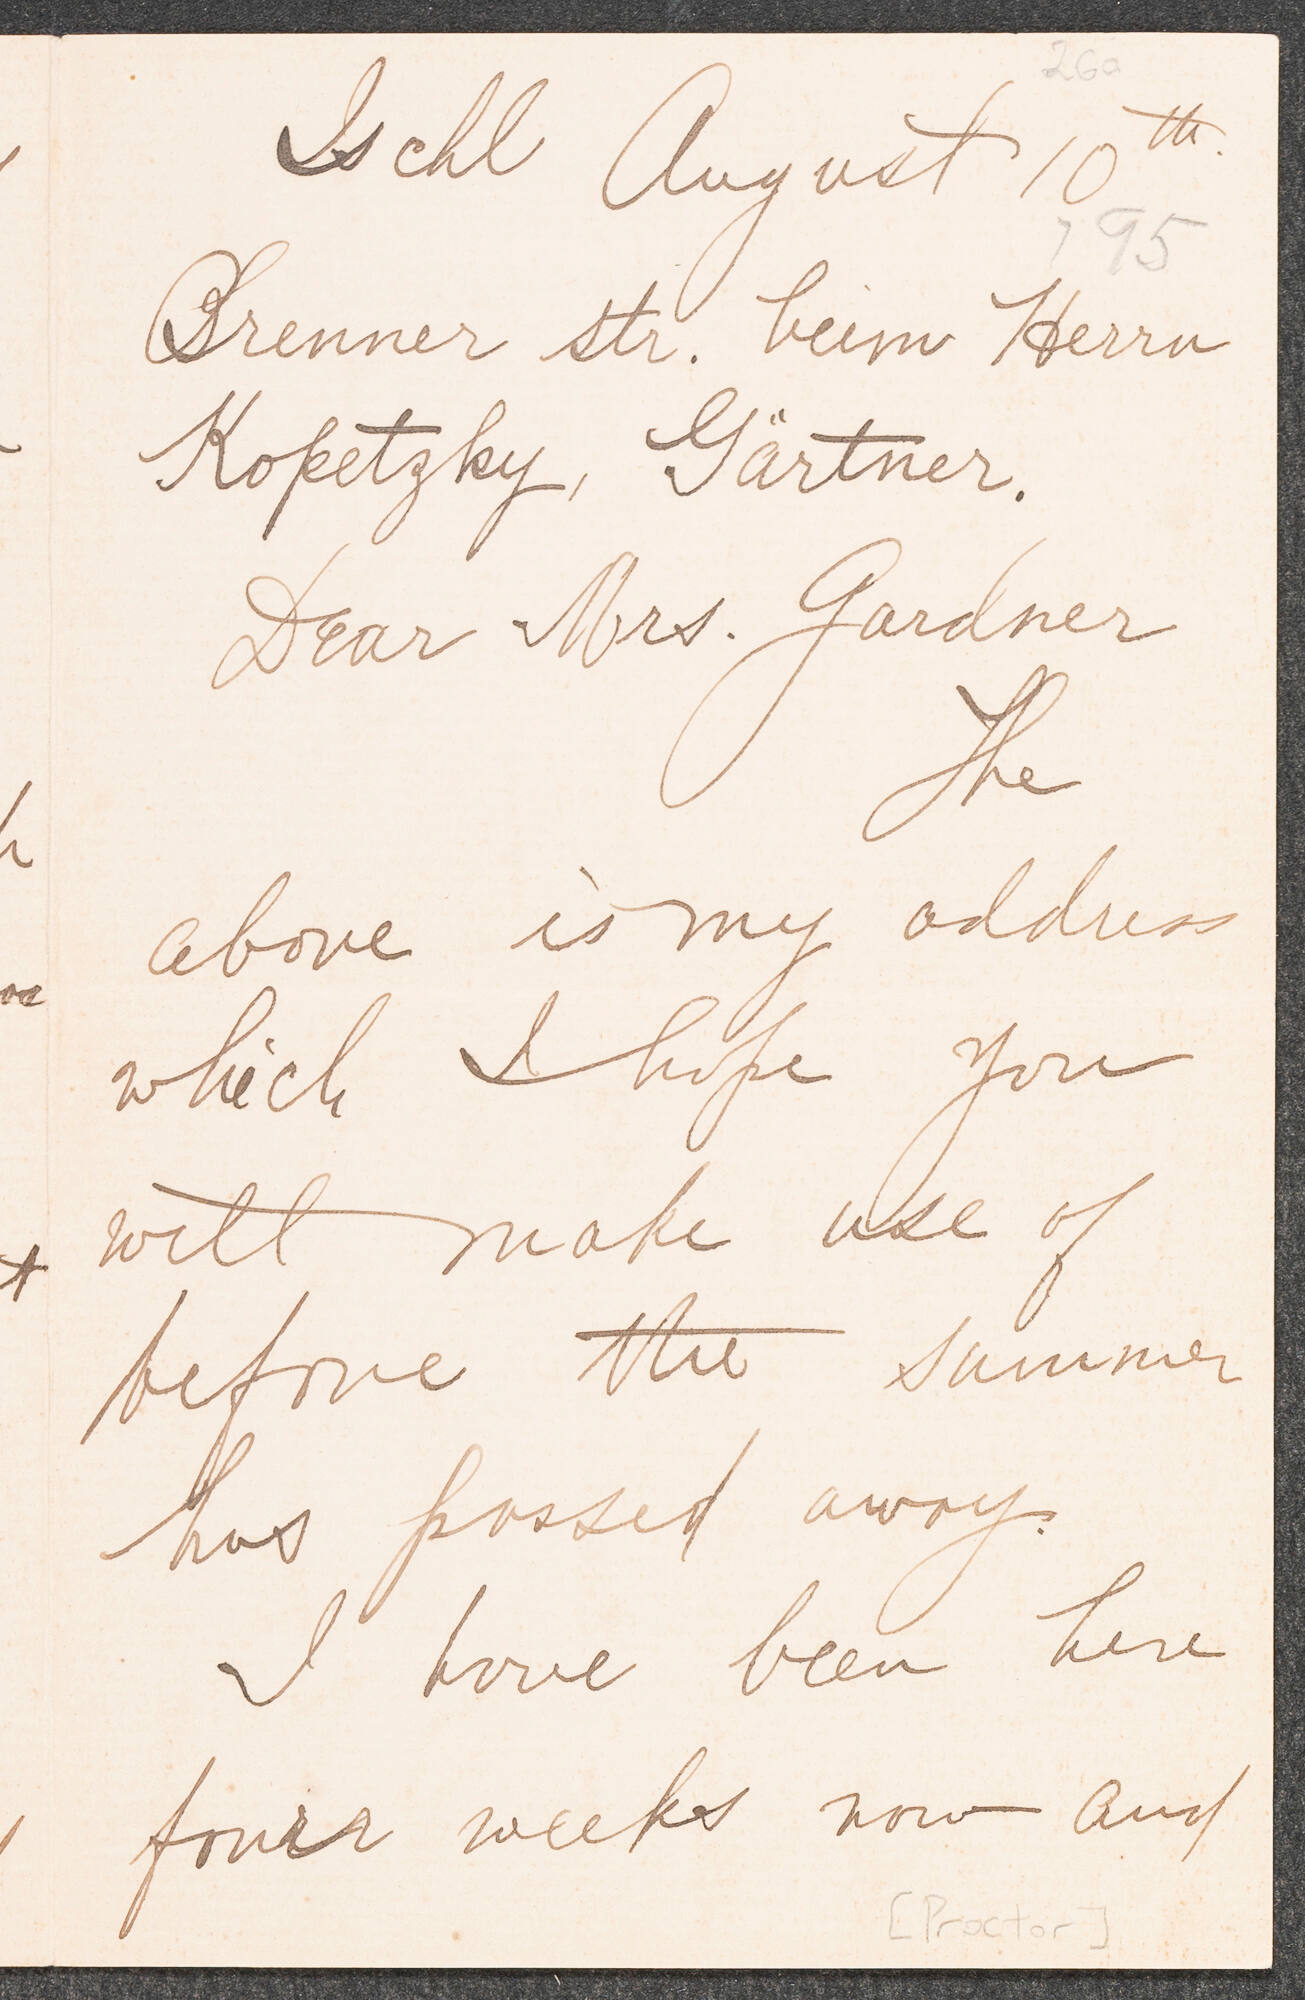 26a
Ischl August 10th.
'95
Brenner str. beim Herrn
Kopetzky, Gärtner.
Dear Mrs. Gardner
The
above is my address
which I hope you
will make use of
before the summer
has passed away.
I have been here
four weeks now and
[Proctor]